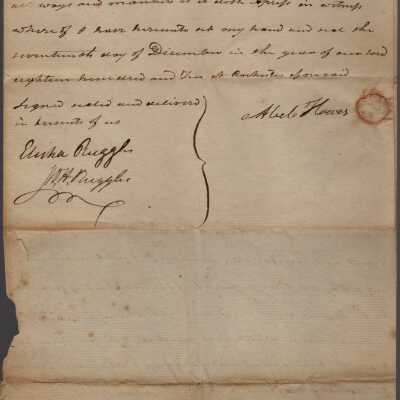 all ways and manner as is doth Express in witness
whereof I have hereunto set my hand and seal the
seventeenth day of December in the year of our lord
eighteen hundred and Ten At Rochester Aforesaid
Signed sealed and delivered
in presents of us
Elisha Ruggles
Abel Howes
Ruggles